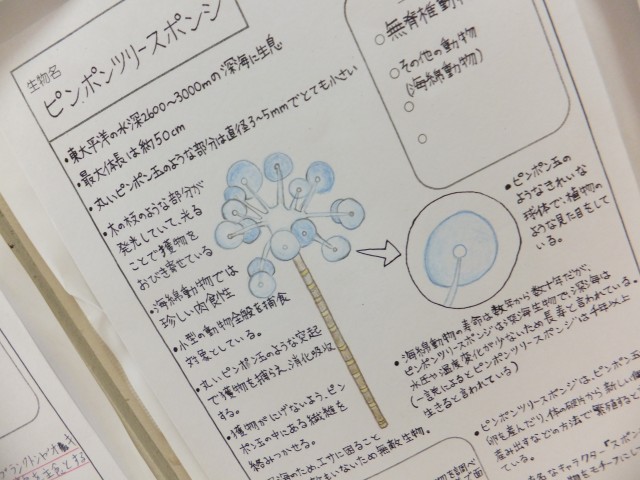 生物名
ピンポンツリースポンジ
・東太平洋の水深2600〜3000mの深海に生息
・最大体長は約50cm
・丸いピンポン玉のような部分は直径3〜5mmでとても小さい
・木の枝のような部分が
発光していて、光る
ことで獲物を
おびき寄せている
・海綿動物では
珍しい肉食性
・小型の動物全般を捕食
対象としている。
・丸いピンポン玉のような突起
で獲物を捕らえ、消化吸収
する。
・獲物がにげないよう、ピン
ポン玉の中にある繊維を
絡みつかせる。
深海のため、エサに困ること
もないため無敵生物。
無脊椎動
○その他の動物
(海綿動物)
・ピンポン玉の
ようなきれいな
球体で、植物の
ような見た目をして
いる。
・海綿動物の寿命は数年から数十年だが、
ピンポンツリースポンジは深海生物で深海は
水圧や温度変化が少ないため長寿と言われている。
(一説によるとピンポンツリースポンジは千年以上
生きると言われている)
・ピンポンツリースポンジは、ピンポン玉
卵を産んだり、体の部分から新しい個
生み出すなどの方法で繁殖すると
ている。
名なキャラクター「スポン
プランクトンやオキアミ
を主食とする